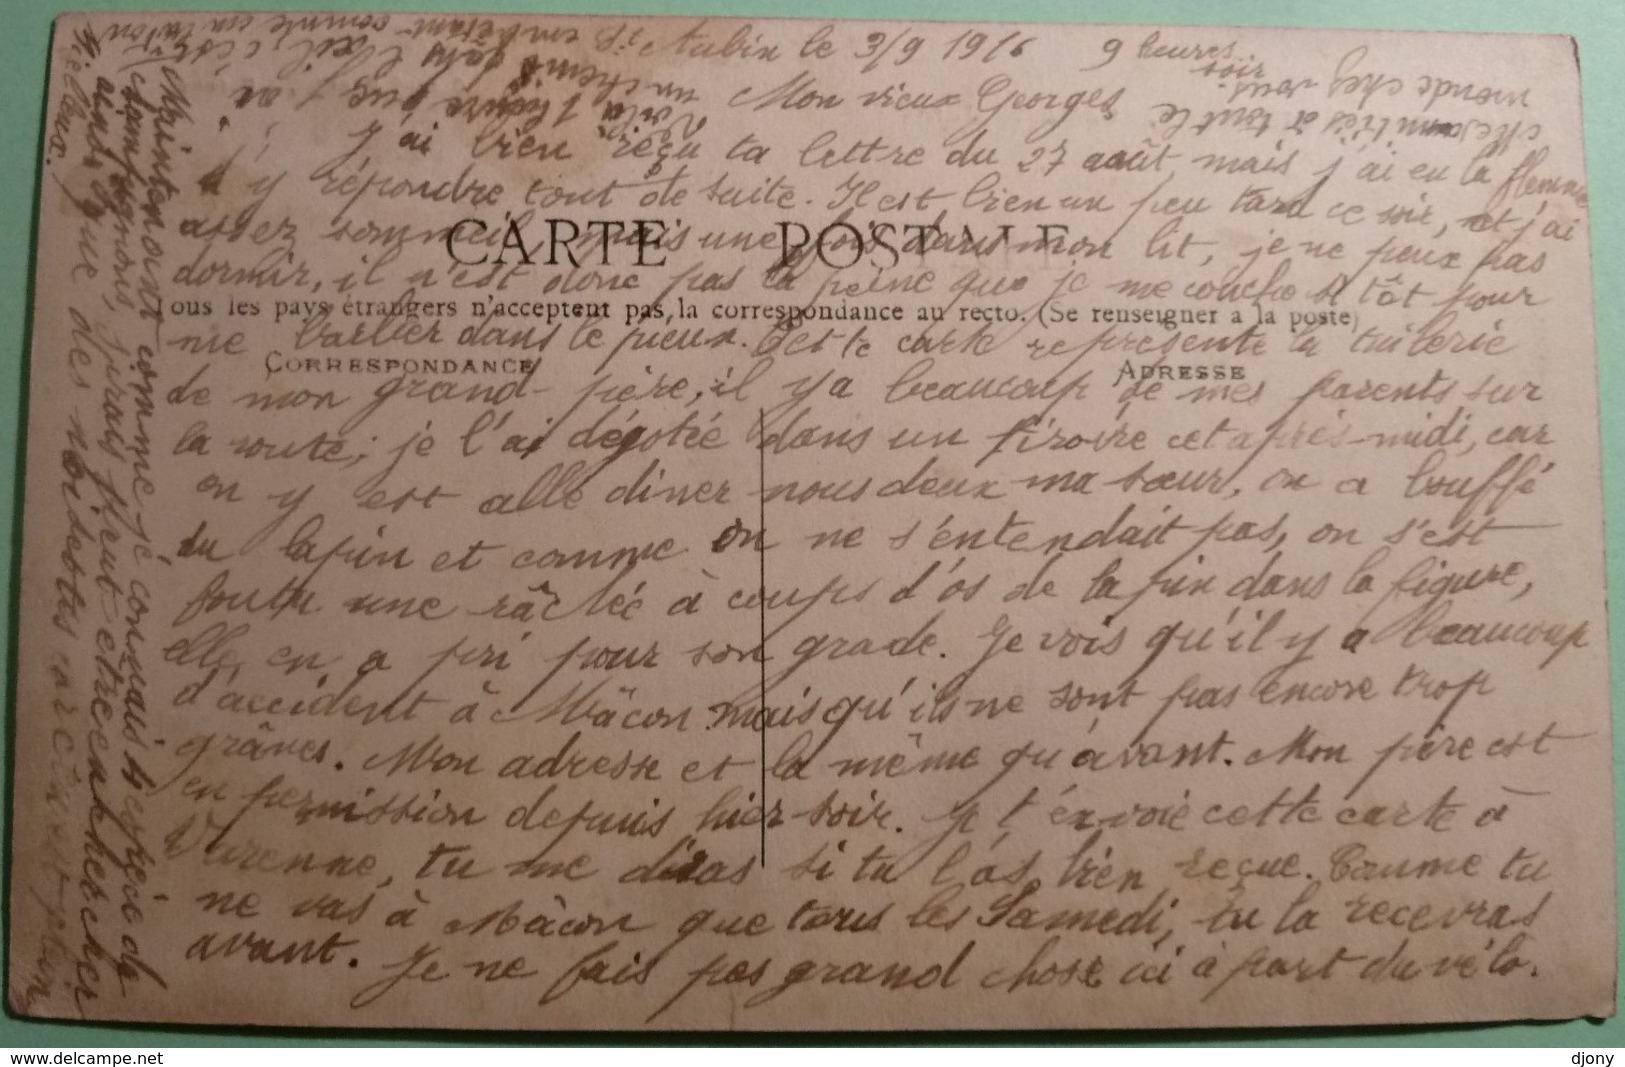 St Aubin le 3/9 1916 9 heures
soir
Mon vieux Georges
J'ai bien reçu ta lettre du 27 août, mais j'ai eu la flemme
d'y répondre tout de suite. Il est bien un peu tard ce soir, et j'ai
assez sommeil, mais une fois dans mon lit, je ne peux pas
CARTE POSTALE
dormir, il n'est donc pas la peine que je me couche si tôt pour
Tous les pays étrangers n'acceptent pas la correspondance au recto. (Se renseigner à la poste)
me barber dans le pieux. Cette carte représente la tuilerie
CORRESPONDANCE ADRESSE
de mon grand-père, il y a beaucoup de mes parents sur
la route; je l'ai dégotée dans un tiroire cet après-midi, car
on y est allé diner nous deux ma sœur, on a bouffé
du lapin et comme on ne s'entendait pas, on s'est
foutu une râclée à coups d'os de lapin dans la figure,
elle en a pri pour son grade. Je vois qu'il y a beaucoup
d'accident à Mâcon mais qu'ils ne sont pas encore trop
grâves. Mon adresse et la même qu'avant. Mon père est
en permission depuis hier soir. Je t'envoie cette carte à
Varenne, tu me diras si tu l'as bien reçue. Comme tu
ne vas à Mâcon que tous les Samedi, tu la recevras
avant. Je ne fais pas grand chose ici à part du vélo.
Maintenant comme je connais la forêt de
champignons, j'irais peut-être en chercher
ainsi que des noisettes car c'est plein
monde chez vous
à tout le
Voilà 1 heure que j'ai
dans l'œil, c'est
embêtant comme un taton
delcampe.net
djony